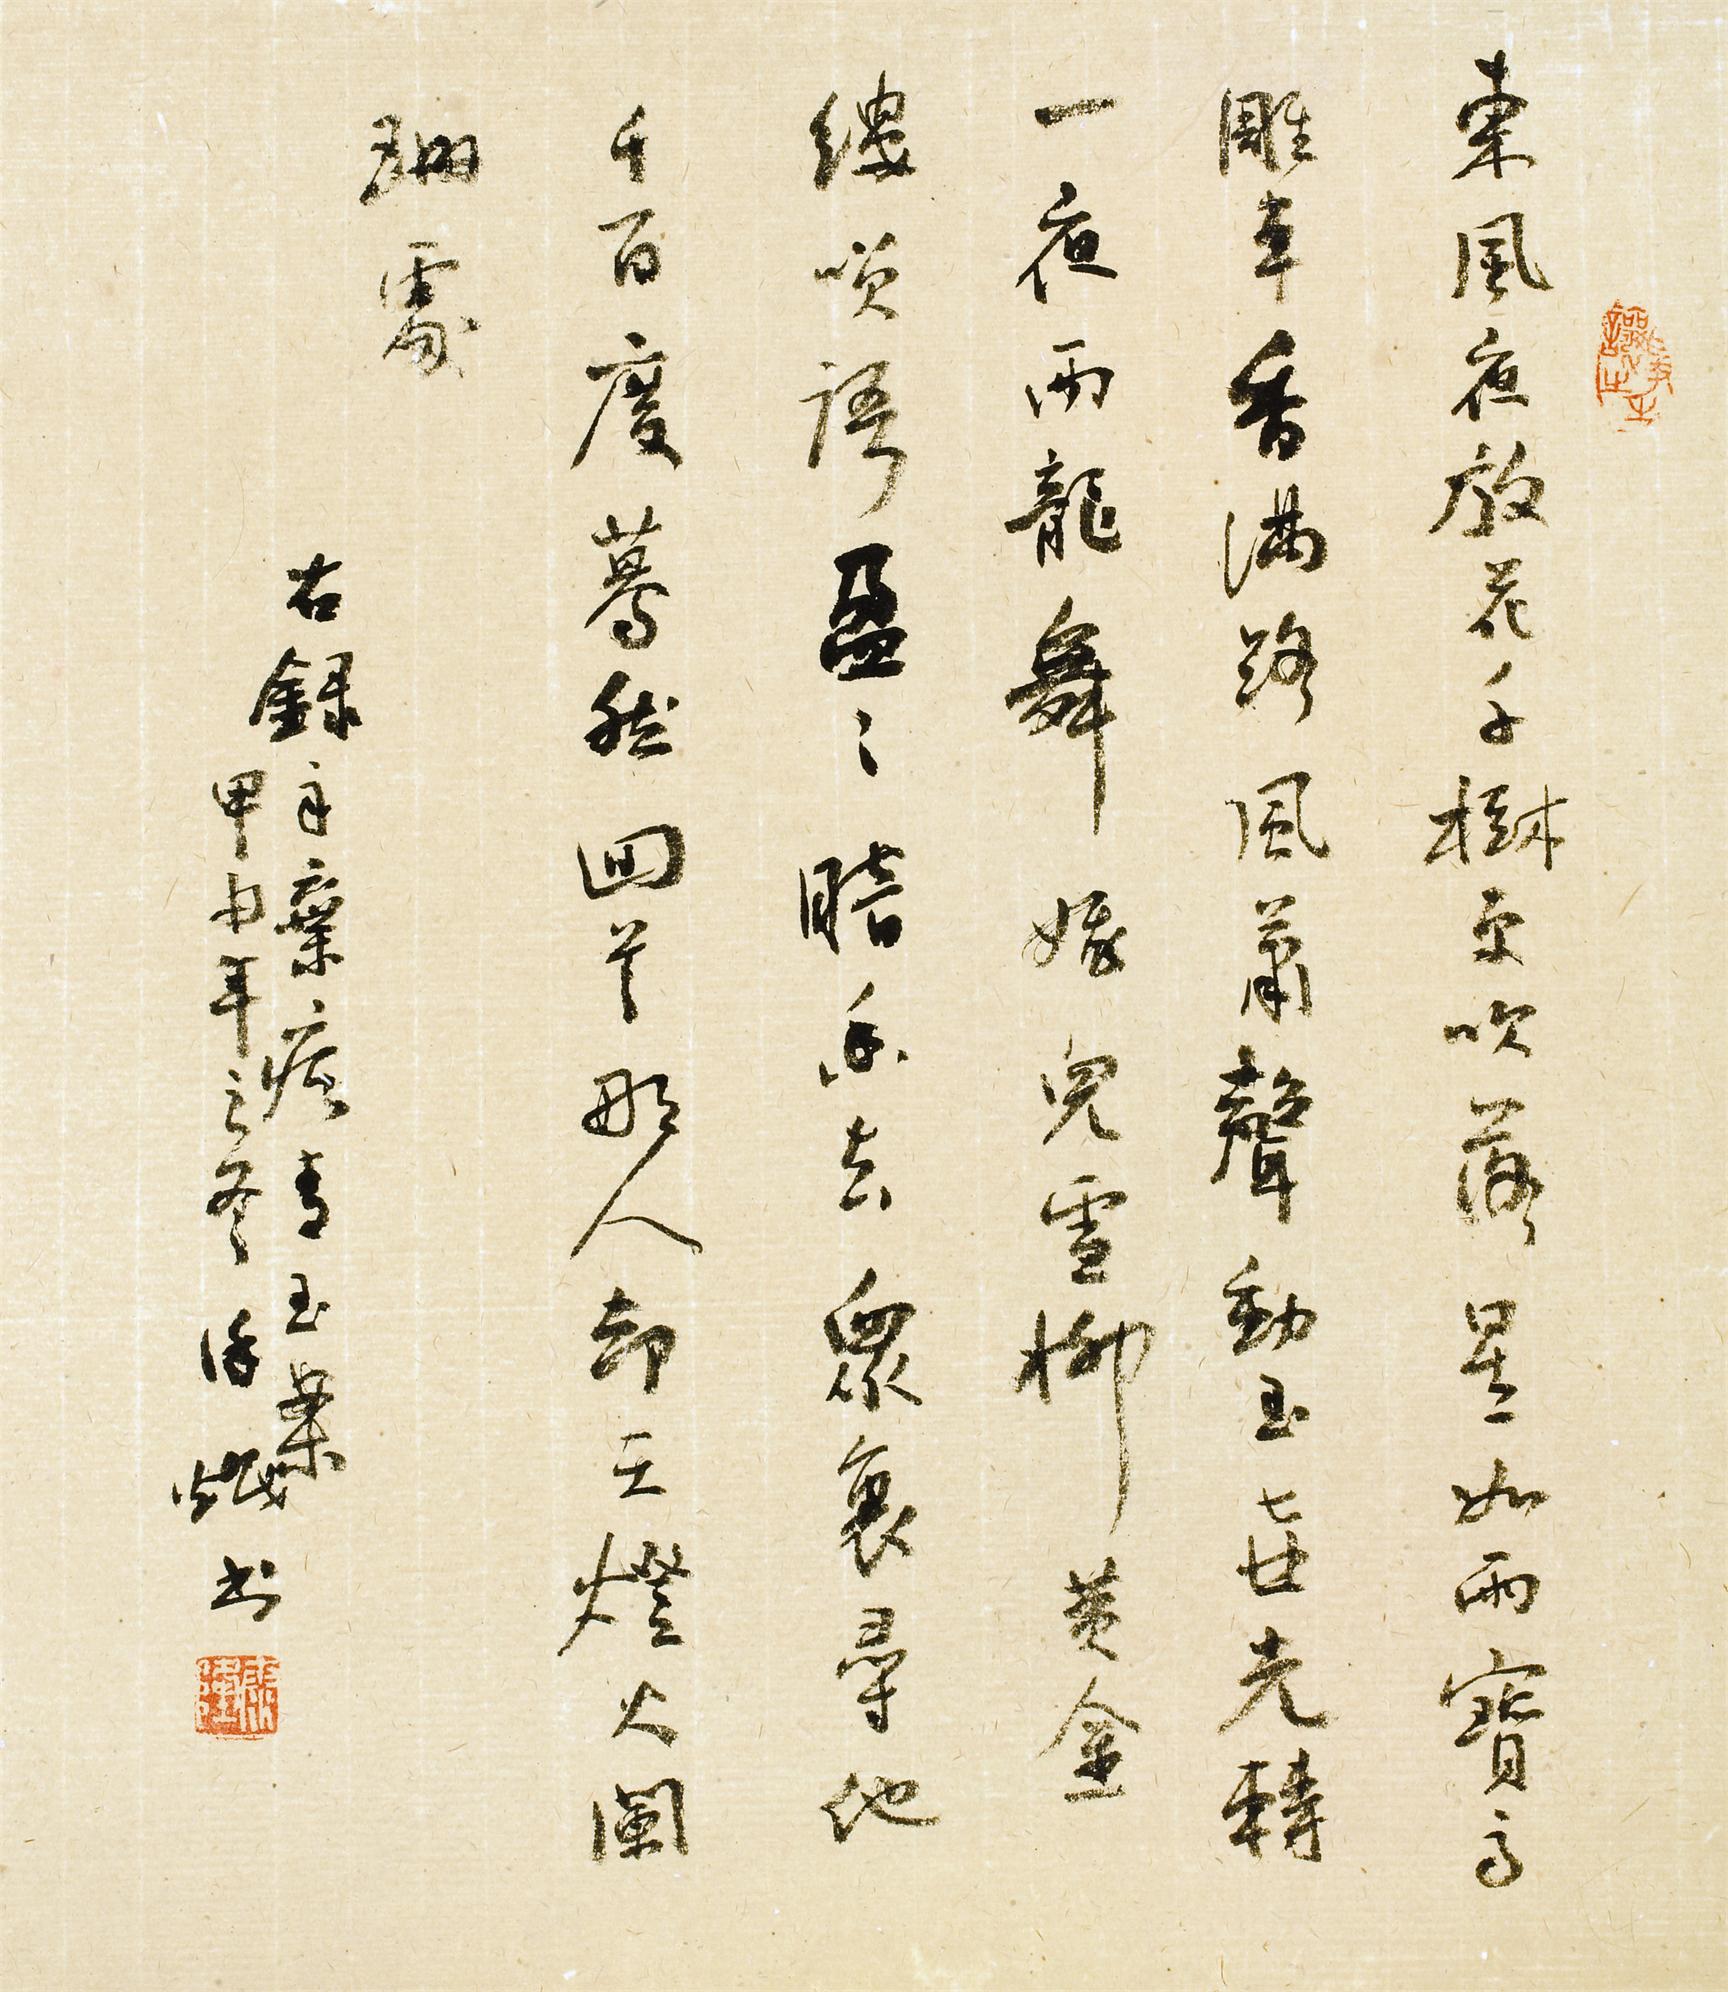 東風夜放花千樹更吹落星如雨寶馬
雕車香满路風蕭聲動玉壺光轉
一夜雨龍舞娥兒雪柳黄金
縷咲語盈々暗香去衆裏尋他
千百度驀然回首那人却在燈火闌
珊處
右錄辛棄疾青玉案
甲申年之冬徐书